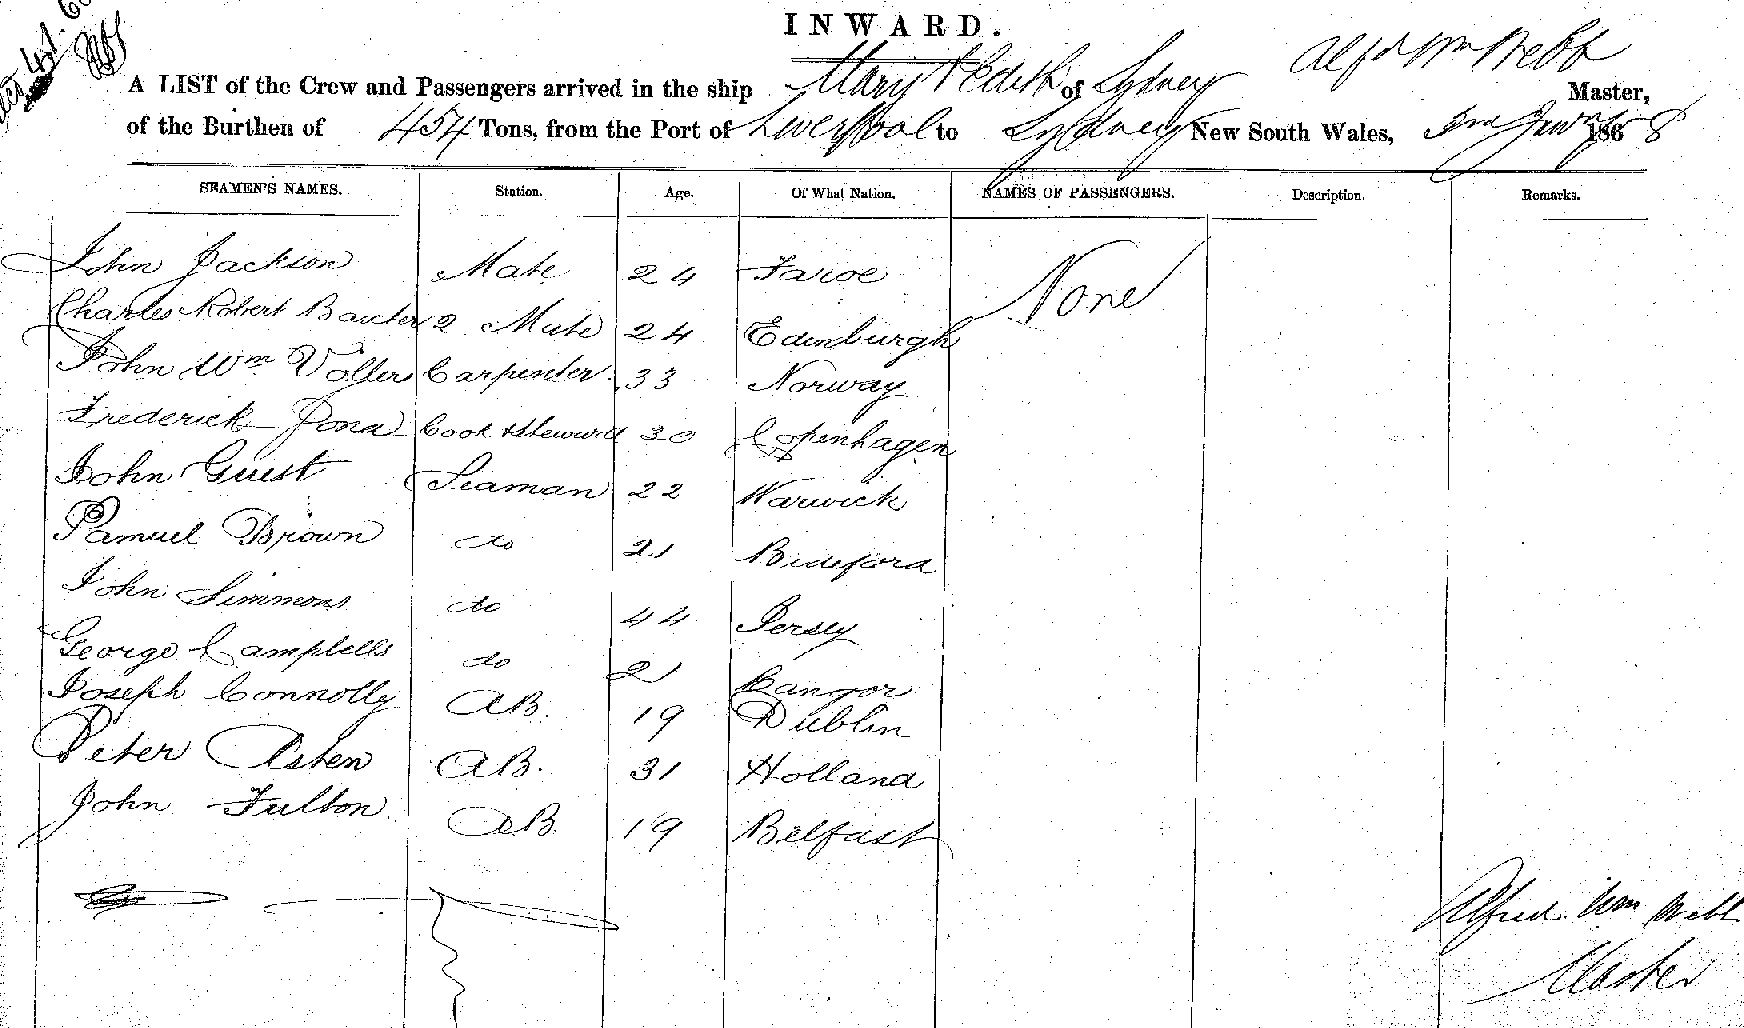 INWARD.
Alfd Wm Webb
A LIST of the Crew and Passengers arrived in the ship Mary & Edith of Sydney Master,
of the Burthen of 454 Tons, from the Port of Liverpool to Sydney New South Wales, 1868
SEAMEN'S NAMES. Station. Age. Of What Nation. NAMES OF PASSENGERS. Description. Remarks.
John Jackson Mate 24 Faroe None
Charles Robert Baxter 2 Mate 24 Edinburgh
John Wm Voller Carpenter 33 Norway
Frederick Jona Cook & Steward 30 Copenhagen
John Guest Seaman 22 Warwick
Samuel Brown do 21 Bideford
John Simmons do 44 Jersey
George Campbells do 21 Bangor
Joseph Connolly AB. 19 Dublin
Peter Asten AB. 31 Holland
John Fulton AB. 19 Belfast
Alfred Wm Webb
Master